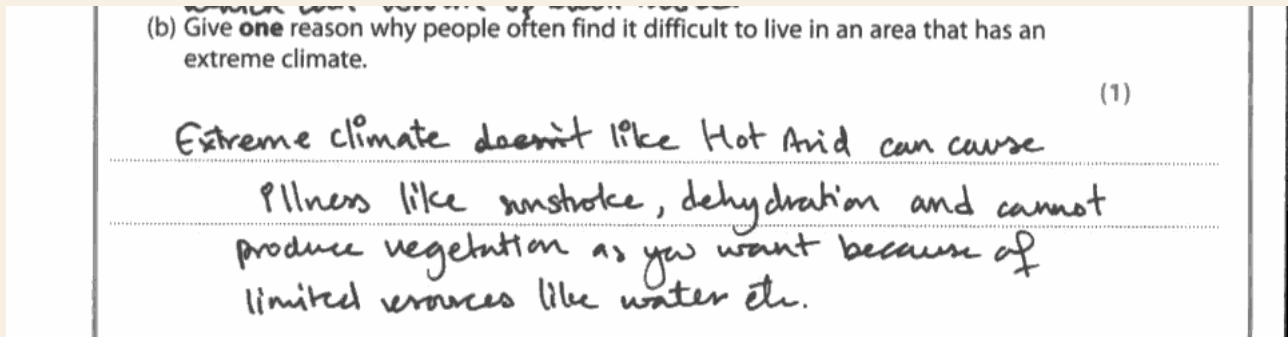 (b) Give one reason why people often find it difficult to live in an area that has an
extreme climate.
(1)
Extreme climate doesn't like Hot Arid can cause
illness like sunstroke, dehydration and cannot
produce vegetation as you want because of
limited resources like water etc.